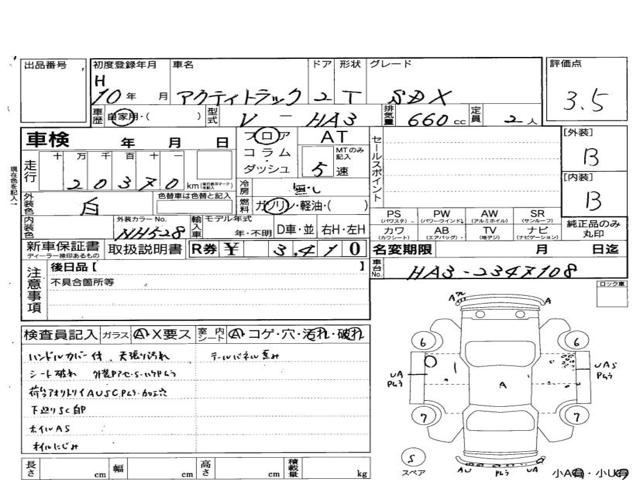 出品番号 初度登録年月 車名 ドア 形状 グレード 評価点
H 10年 月 アクティトラック 2 T SDX 3.5
車歴 自家用・( ) 型式 V-HA3 排気量 660cc 定員 2人
車検 年 月 日 フロア AT
コラム・ MTのみ記入
ダッシュ 5速
セールスポイント
[外装] B
[内装] B
現在色を記入→
走行 十 万 千 百 十
20370 km
冷房
燃料 ガソリン・軽油・( )
外装色 白 外装カラーNo. NH528
色替車は色替と記入
内装色
輸入車 モデル年式 年・不明 D車・並 右H・左H
PS (パワステ) PW (パワーウインド) AW (アルミホイル) SR (サンルーフ)
カワ (カワシート) AB (エアバッグ) TV (地デジ) ナビ (ナビゲーション)
純正品のみ丸印
新車保証書 取扱説明書 R券 ¥ 3,410
ディーラー検印あるもの
名変期限 月 日迄
注意事項 後日品[ ]
不具合箇所等
車台No. HA3-2347108
ロック車
検査員記入 ガラス A・X要ス 室内シート A・コゲ・穴・汚れ・破れ
ハンドルカバー付 天張り汚れ テールパネル歪み
シート破れ
下廻りSC
ホイルAS
オイルにじみ
A A
6 6
UA UAS
A
7 7
S
スペア
AU
長さ cm 幅 cm 高さ cm 積載量 kg
小A・小U